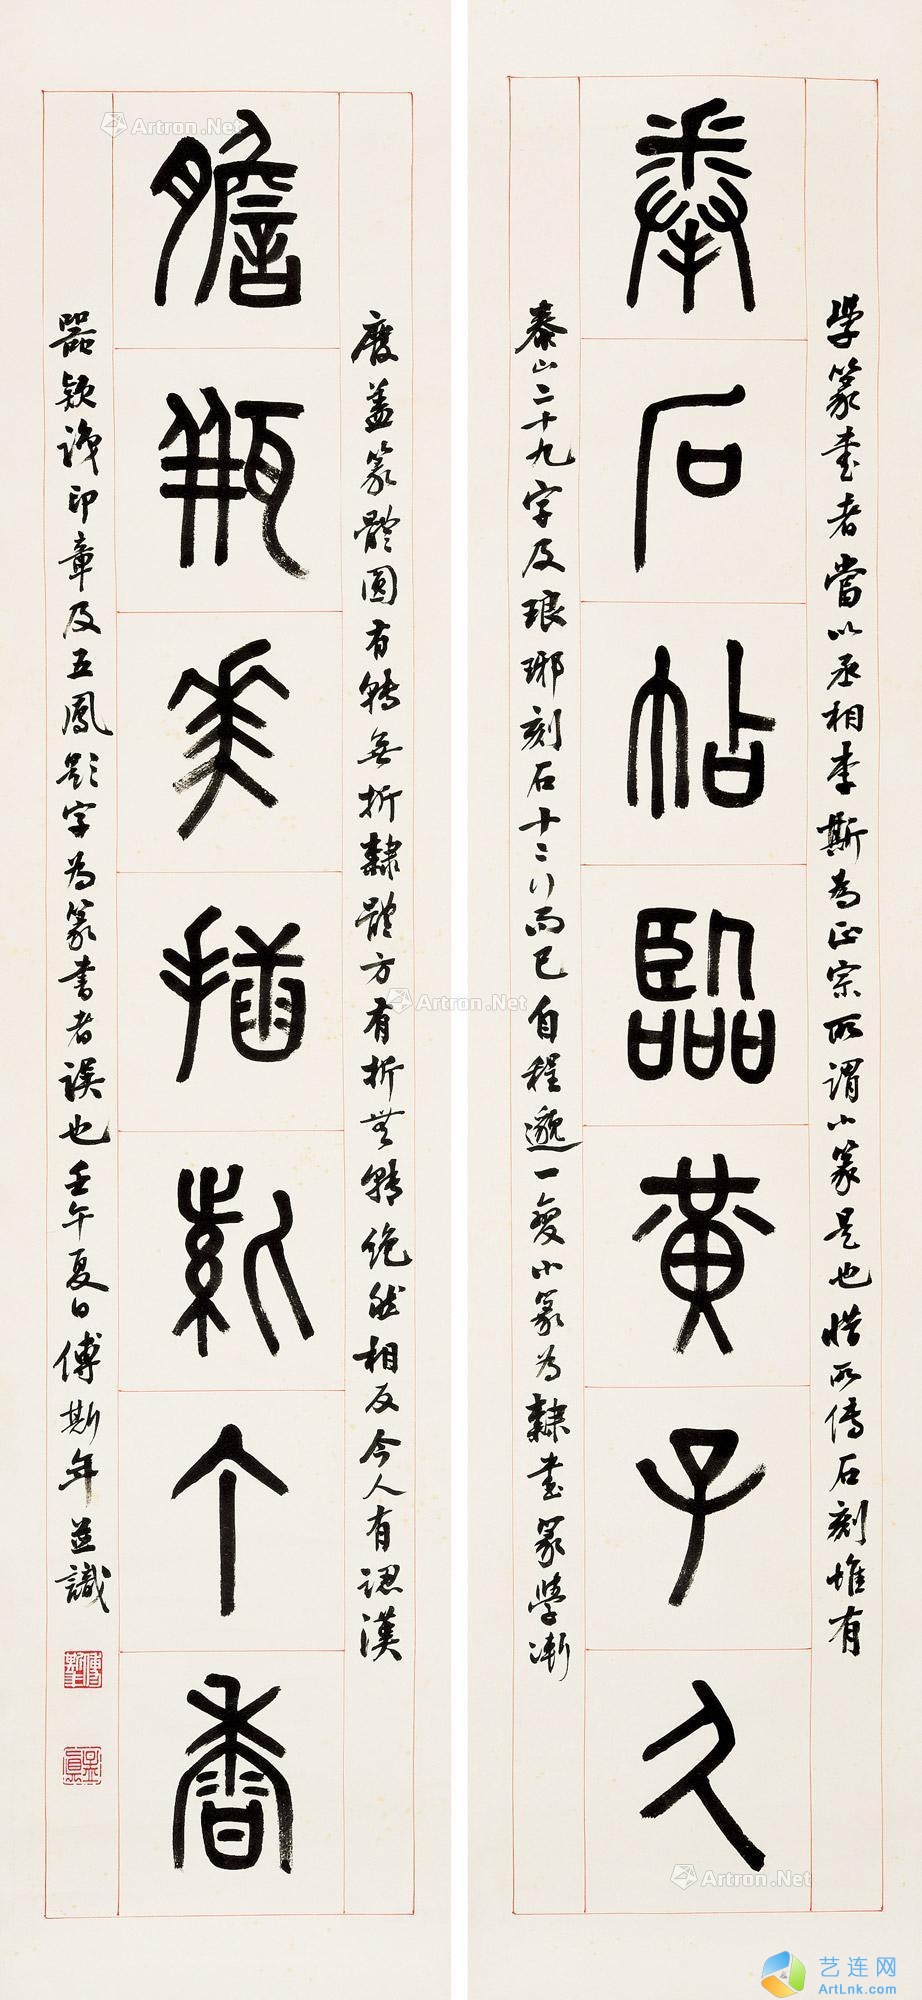 學篆書者當以丞相李斯為正宗所謂小篆是也惜所傳石刻惟有
拳石帖臨黃子久
泰山二十九字及琅琊刻石十二行而已自程邈一變小篆為隸書篆學漸
廢蓋篆體圓有轉無折隸體方有折無轉絕然相反今人有認漢
膽瓶花插紫丁香
器款識印章及五鳳影字為篆書者誤也壬午夏日傅斯年並識
傅斯年
孟真
Artron.Net
Artron.Net
Artron.Net
Artron.Net
艺连网
ArtLnk.com